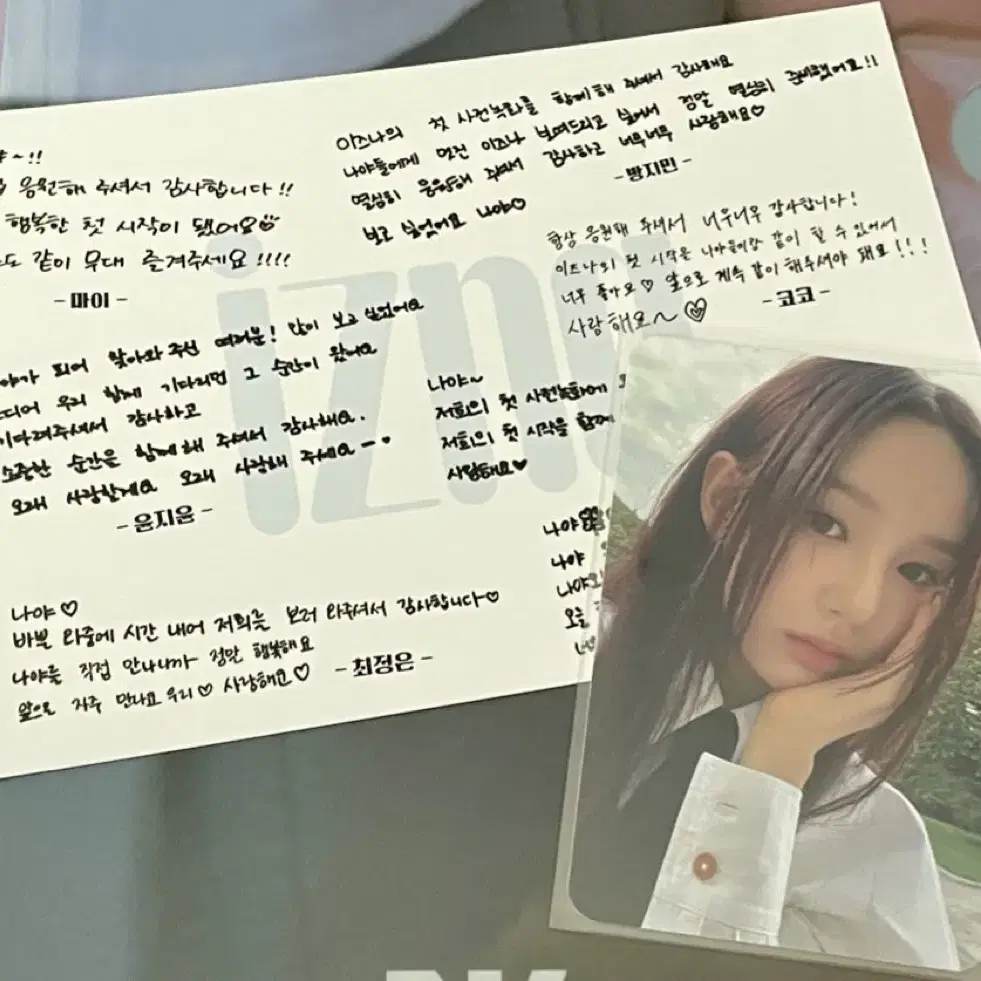 ~!!
응원해 주셔서 감사합니다!!
행복한 첫 시작이 됐어요
도 같이 무대 즐겨주세요!!!!
- 마이 -
이즈나의 첫 사전녹화를 함께 해 주셔서 감사해요
나야들에게 멋진 이즈나 보여드리고 싶어서 정말 열심히 준비했어요!!
열심히 응원해 주셔서 감사하고 너무너무 사랑해요♡
보고 싶었어요 나야♡
- 방지민 -
항상 응원해 주셔서 너무너무 감사합니다!
이즈나의 첫 시작을 나야들이랑 같이 할 수 있어서
너무 좋아요♡ 앞으로 계속 같이 해주셔야 돼요!!!
사랑해요~♡
- 코코 -
야가 되어 찾아와 주신 여러분! 많이 보고 싶었어요
디어 우리 함께 기다리던 그 순간이 왔어요
기다려주셔서 감사하고
소중한 순간을 함께 해 주셔서 감사해요.
오래 사랑할게요 오래 사랑해 주세요
- 윤지윤 -
나야~
저희의 첫 사전녹화에
저희의 첫 시작을 함께
사랑해요♡
나야
나야
나야
오늘
나야♡
바쁠 와중에 시간 내어 저희를 보러 와주셔서 감사합니다♡
나야를 직접 만나니까 정말 행복해요
앞으로 자주 만나요 우리♡ 사랑해요♡
- 최정은 -
izna